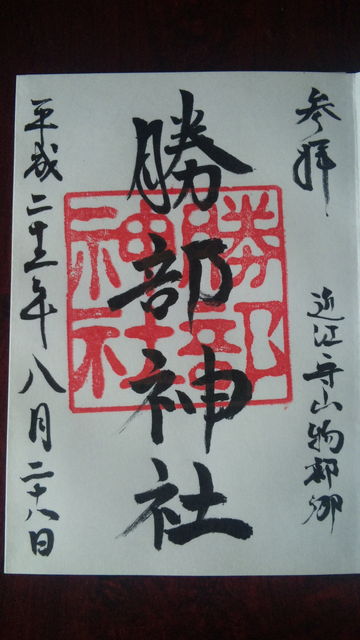 参拝
近江守山物部郷
勝部神社
勝部
神社
平成二十三年八月二十八日